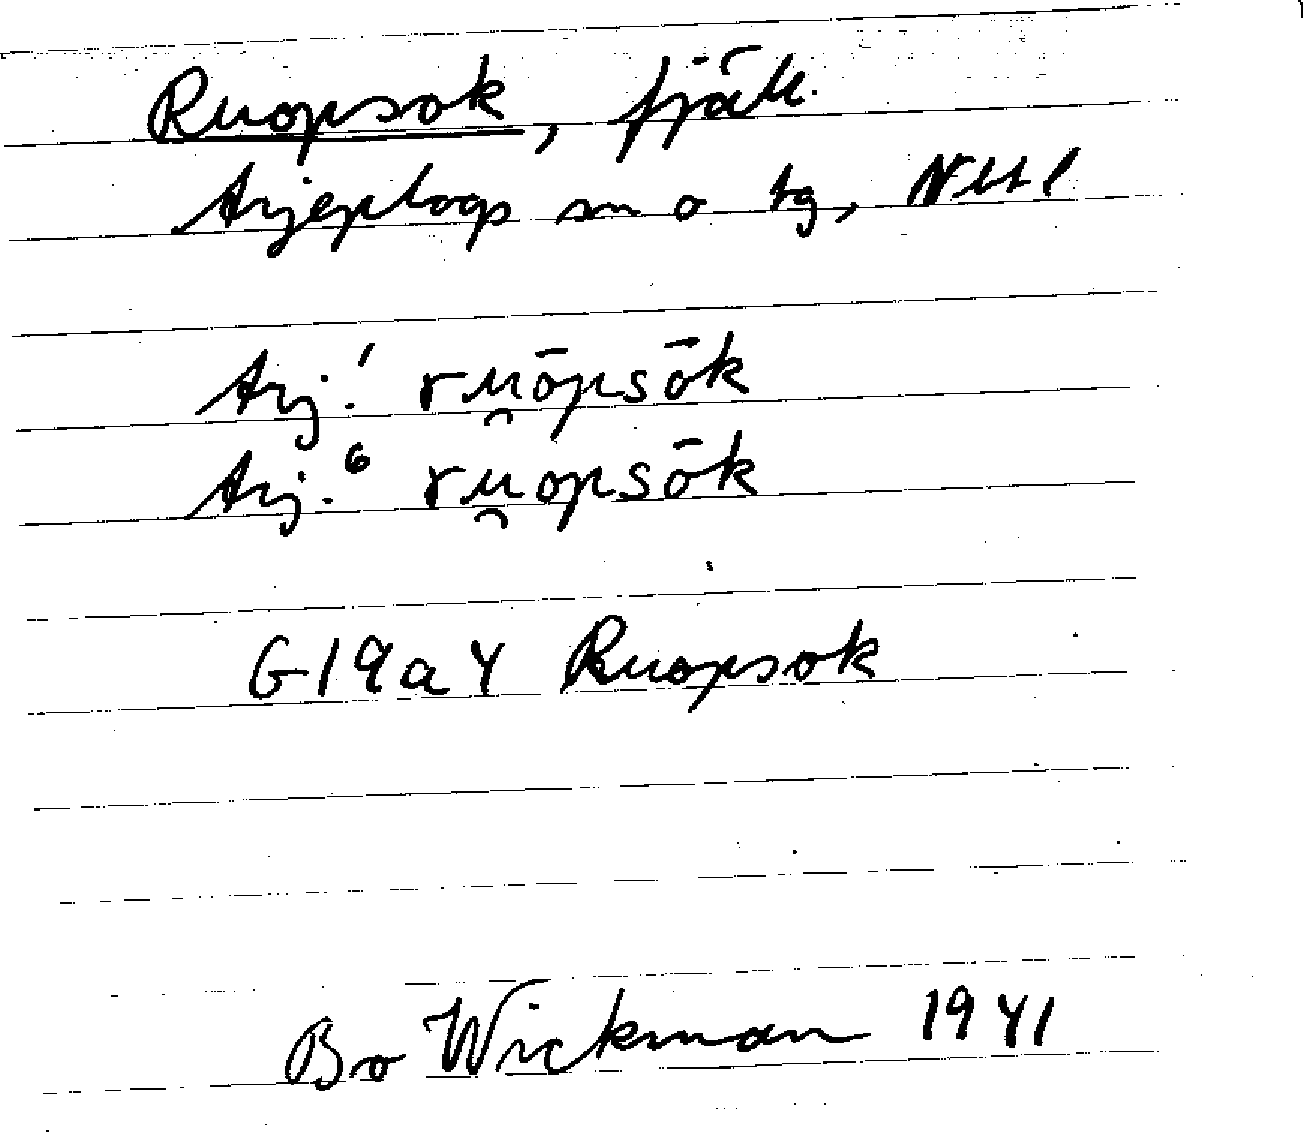 Ruopsok, fjäll.
Arjeplogs sn o tg, Nbtl
Arj.¹ ru̯ōpsōk
Arj.⁶ ru̯opsōk
G19a4 Ruopsok
Bo Wickman 1941